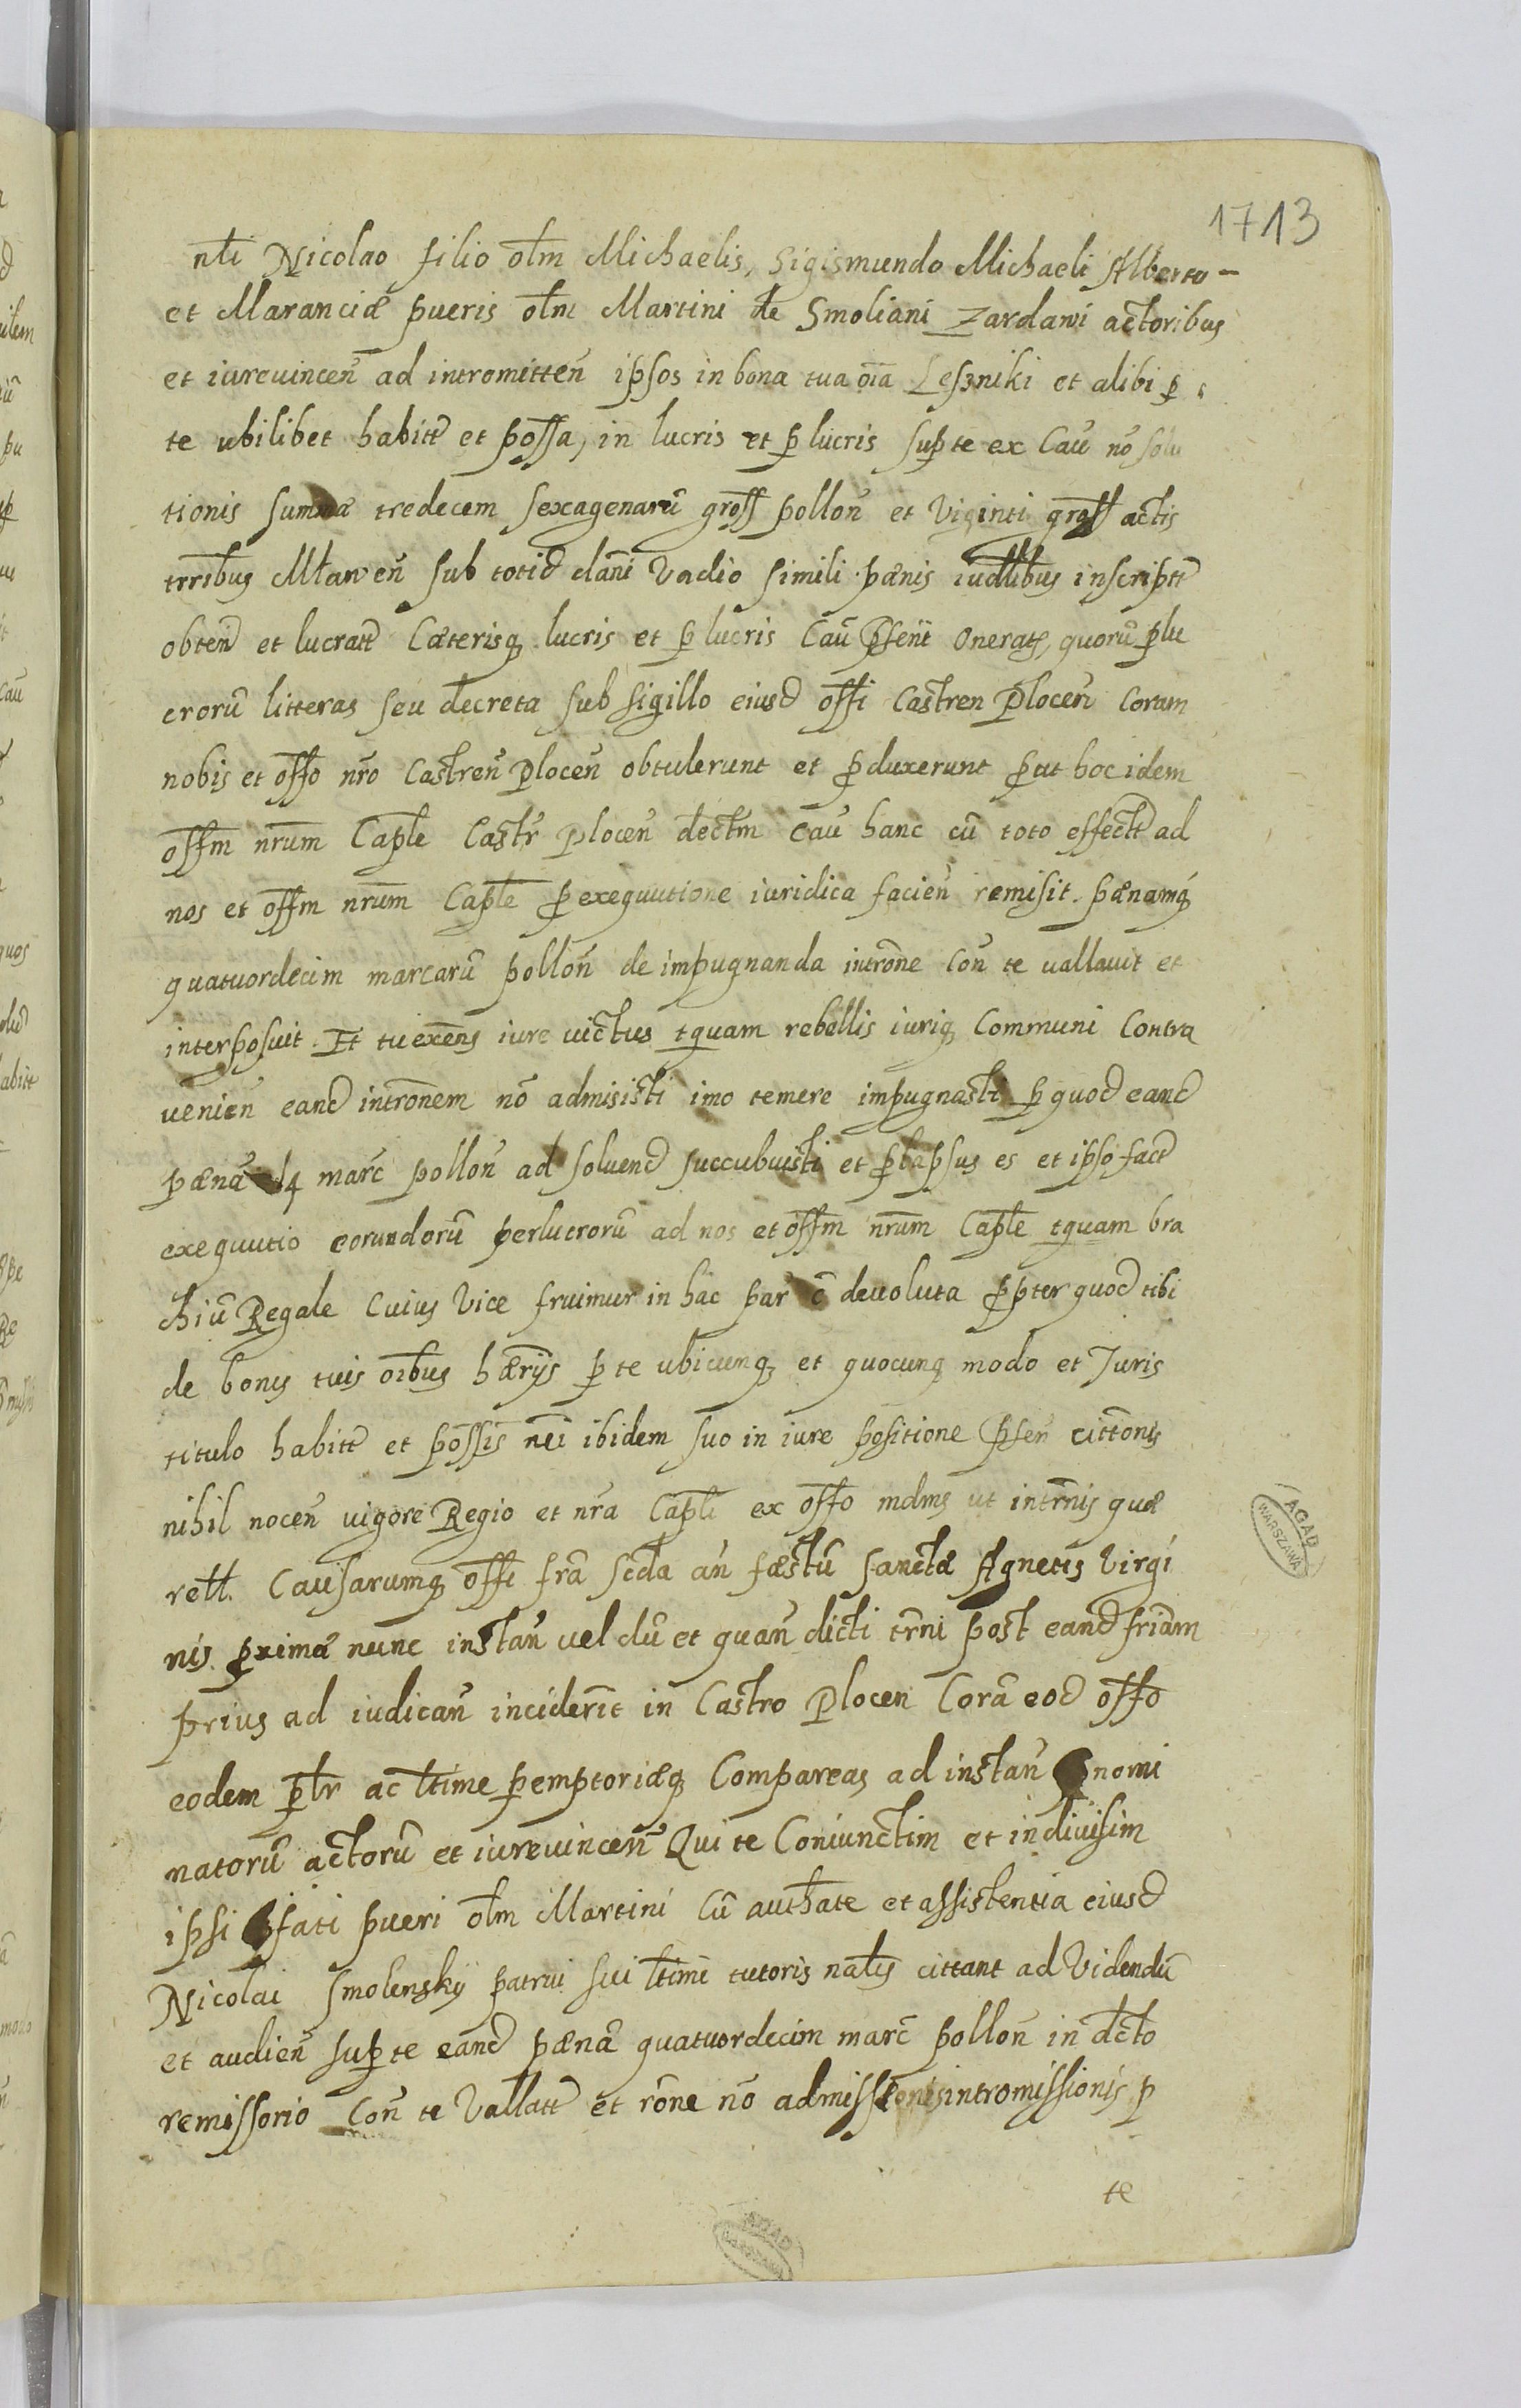 1713
nti Nicolao filio olm Michaelis, Sigismundo Michaeli Alberto -
et Maranciæ pueris olm Martini de Smoliani Zardawi actoribus
et iurevincen ad intromitten ipsos in bona tua oia Leszniki et alibi p
te ubilibet habitt et possa, in lucris et plucris sup te ex Cau no solu
tionis summæ tredecem sexagenarū gross pollon et Viginti gross actis
trribus Mławen sub totid dani Vadio simili pænis iudlibus inscriptt
obten et lucratt Cæterisq lucris et plucris Cau psenti oneratq, quorū plu
crorū litteras seu decreta sub sigillo eiusd offi Castren Plocen Coram
nobis et offo nro Castren Plocen obtulerunt et pduxerunt put hoc idem
offm nrum Caple Castr Plocen dectm cau hanc cū toto effectt ad
nos et offm nrum Caple p exequutione iuridica facien remisit. pænamq
quatuordecim marcarū pollon de impugnanda introne Con te vallavit et
interposuit. Et tu exens iure victus tquam rebellis iuriq Communi Contra
venien eand intronem nō admisisti imo temere impugnasti p quod eand
pænā 14 marc pollon ad solvend succubuisti et plapsus es et ipso fact
exequutio eorundorū perlucrorū ad nos et offm nrum Caple tquam bra
chiū Regale Cuius Vice fruimur in hac par ē devoluta ppter quod tibi
de bonis tuis oibus hærijs p te ubicunq et quocunq modo et Juris
titulo habitt et possis nei ibidem suo in iure positione psen cittonis
nihil nocen vigore Regio et nra Capli ex offo mdms ut intrnis quæ
rett. Causarumq offi fra scda an fæstū sanctæ Agnetis Virgi
nis pximæ nunc instan vel dū et quan dicti trni post eand friam
prius ad iudican inciderit in Castro Plocen Corā eod offo
eodem pltr ac ltime pemptoriæq Compareas ad instan pnomi
natorū actorū et iurevincen Qui te Coniunctim et indivisim
ipsi pfati pueri olm Martini Cū authate et assistentia eiusd
Nicolai Smolensky patrui sui ltimi tutoris nalis cittant ad Videndū
et audien sup te eand pænā quatuordecim marc pollon in dcto
remissorio Con te Vallatt et rone nō admissionis intromissionis p
te
AGAD
WARSZAWA
AGAD
WARSZAWA